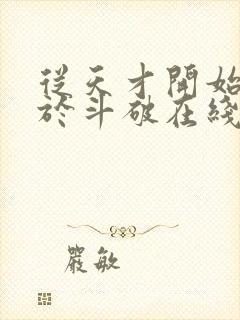 從天才開始
於斗破在綫
嚴敏